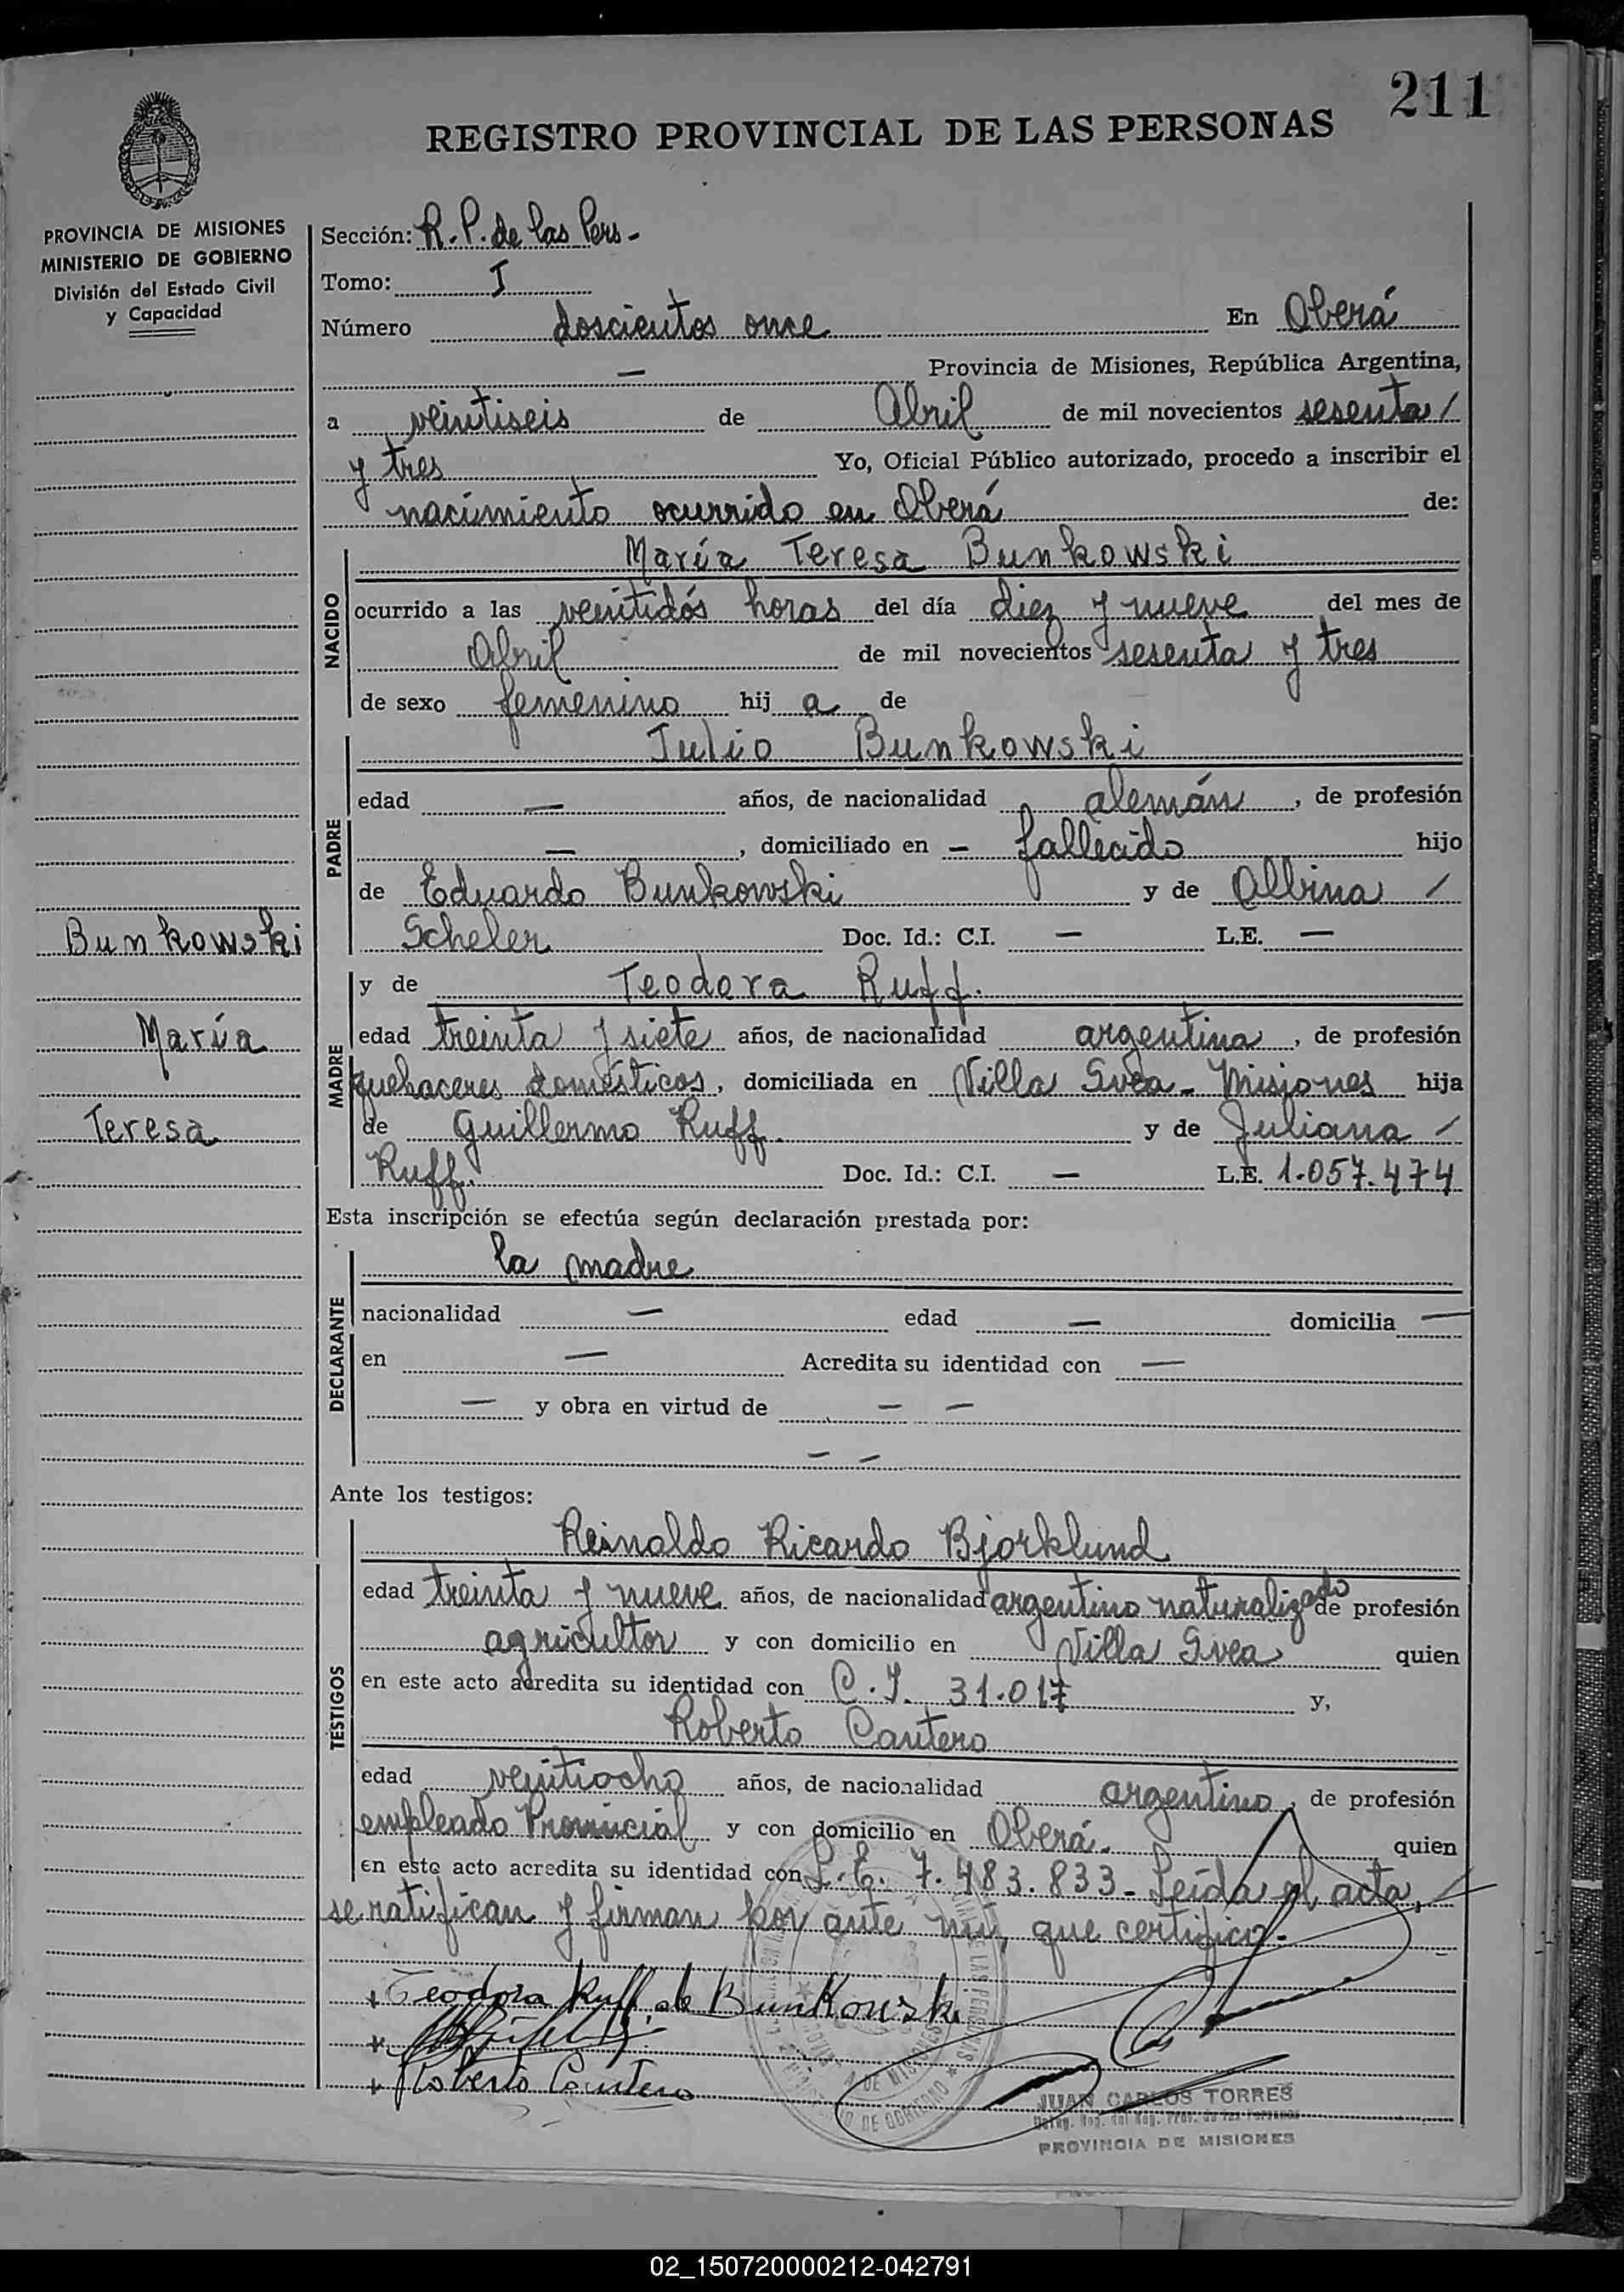 211
REGISTRO PROVINCIAL DE LAS PERSONAS
PROVINCIA DE MISIONES
MINISTERIO DE GOBIERNO
División del Estado Civil
y Capacidad
Sección: R. P. de las Pers -
Tomo: I
Número doscientos once En Oberá
— Provincia de Misiones, República Argentina,
a veintiseis de Abril de mil novecientos sesenta /
y tres Yo, Oficial Público autorizado, procedo a inscribir el
nacimiento ocurrido en Oberá de:
NACIDO
María Teresa Bunkowski
ocurrido a las veintidós horas del día diez y nueve del mes de
Abril de mil novecientos sesenta y tres
de sexo femenino hij a de
PADRE
Julio Bunkowski
edad — años, de nacionalidad alemán, de profesión
—, domiciliado en - fallecido hijo
de Eduardo Bunkowski y de Albina /
Scheler Doc. Id.: C.I. — L.E. —
Bunkowski
María
Teresa
MADRE
y de Teodora Ruff.
edad treinta y siete años, de nacionalidad argentina, de profesión
quehaceres domésticos, domiciliada en Villa Svea - Misiones hija
de Guillermo Ruff. y de Juliana /
Ruff. Doc. Id.: C.I. — L.E. 1.057.474
Esta inscripción se efectúa según declaración prestada por:
DECLARANTE
la madre
nacionalidad — edad — domicilia —
en — Acredita su identidad con —
— y obra en virtud de — —
— —
Ante los testigos:
TESTIGOS
Reinaldo Ricardo Bjorklund
edad treinta y nueve años, de nacionalidad argentino naturalizado de profesión
agricultor y con domicilio en Villa Svea quien
en este acto acredita su identidad con C.I. 31.017 y,
Roberto Cantero
edad veintiocho años, de nacionalidad argentino, de profesión
empleado Provincial y con domicilio en Oberá. quien
en este acto acredita su identidad con L.E. 7.483.833 - Leída el acta,
se ratifican y firman por ante mí, que certifico.-
Teodora Ruff de Bunkowski
Roberto Cantero
JUAN CARLOS TORRES
PROVINCIA DE MISIONES
02_150720000212-042791